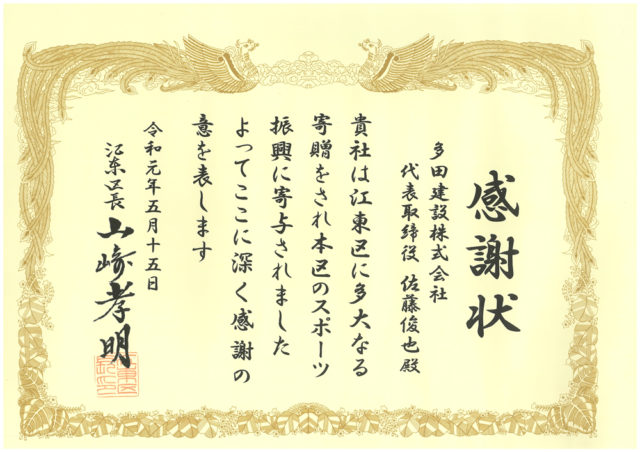 感謝状
多田建設株式会社
代表取締役 佐藤俊也殿
貴社は江東区に多大なる
寄贈をされ本区のスポーツ
振興に寄与されました
よってここに深く感謝の
意を表します
令和元年五月十五日
江東区長 山﨑孝明